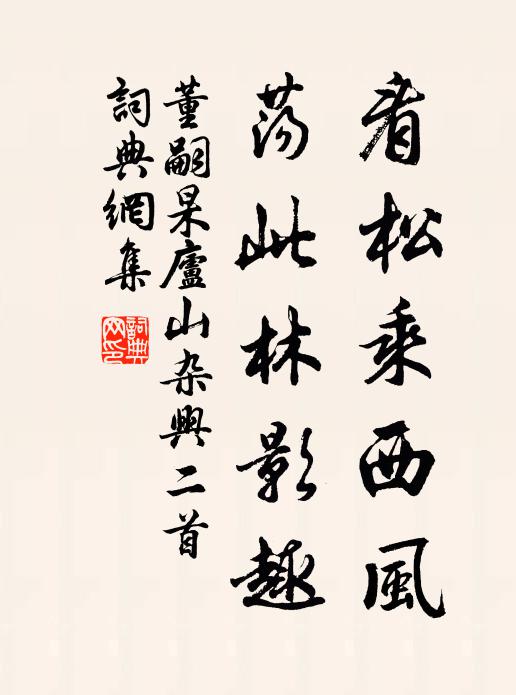 看松乘西風
蕩此林影趣
董嗣杲廬山杂興二首
詞典網集
詞典网印